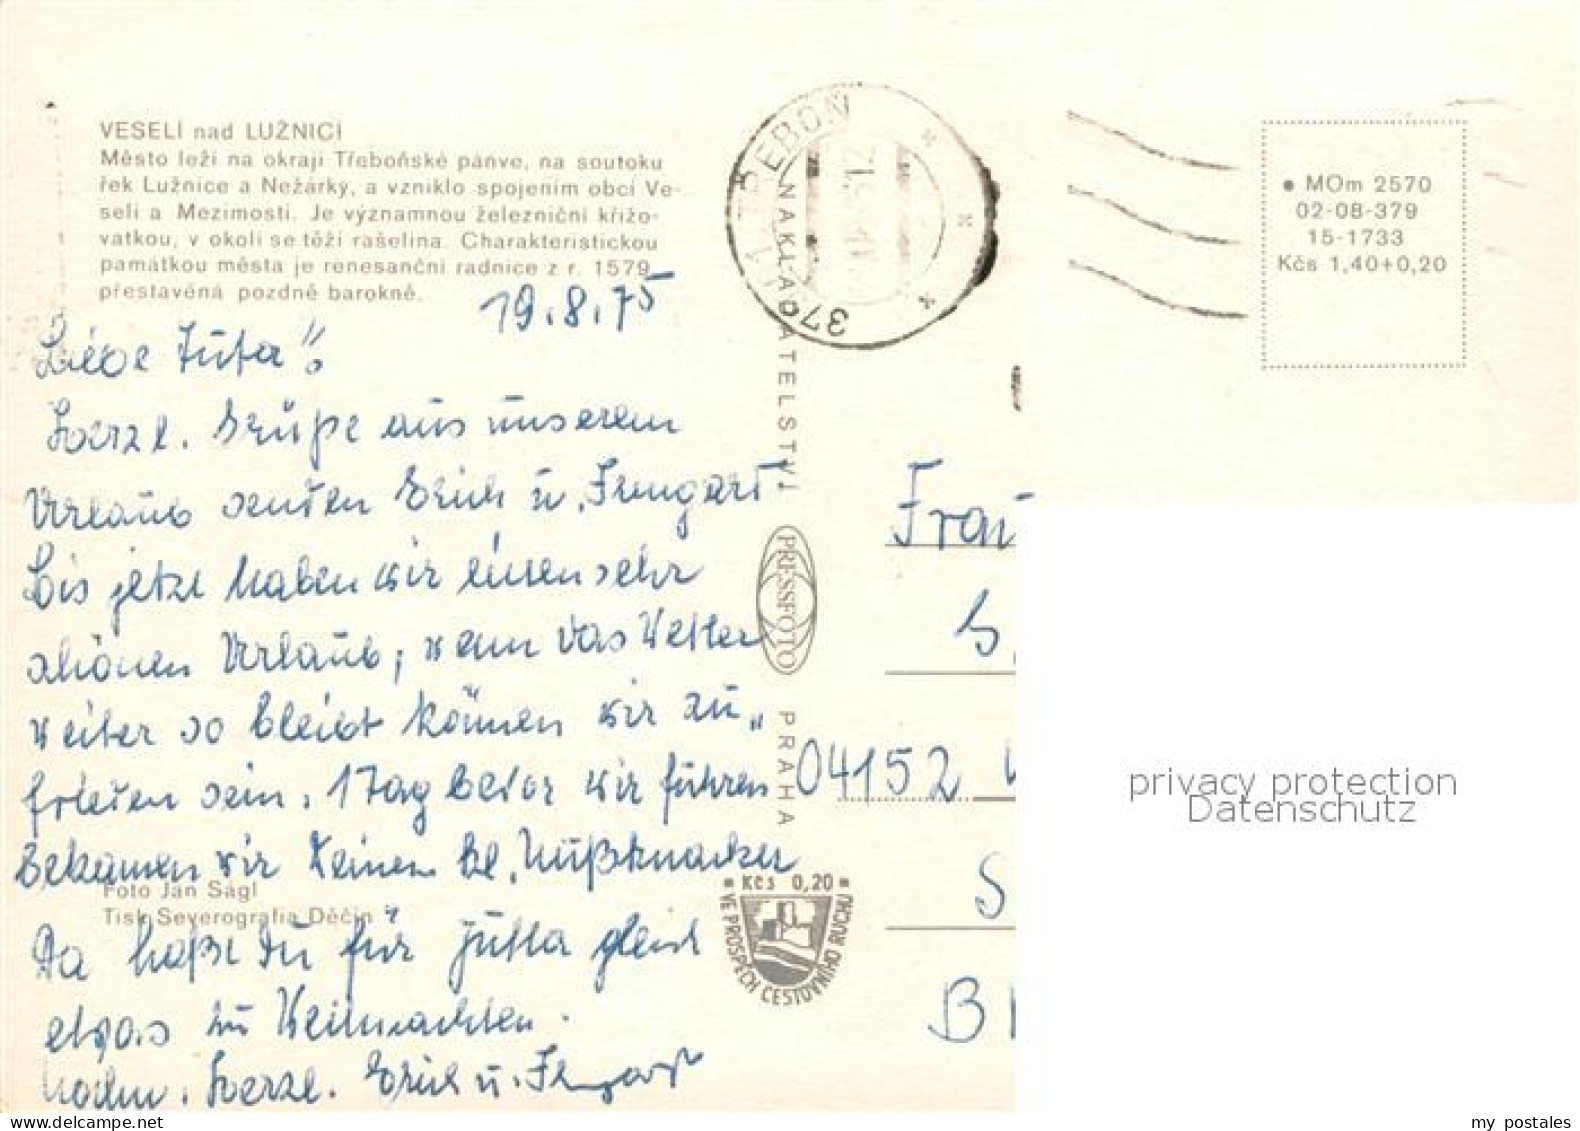 VESELÍ nad LUŽNICÍ
Město leží na okraji Třeboňské pánve, na soutoku
řek Lužnice a Nežárky, a vzniklo spojením obcí Ve-
selí a Mezimostí. Je významnou železniční křižo-
vatkou, v okolí se těží rašelina. Charakteristickou
památkou města je renesanční radnice z r. 1579
přestavěná pozdně barokně.
19.8.75
Liebe Juta!
Herzl. Grüße aus unserem
Urlaub senden Erich u. Irmgard
Bis jetzt haben wir einen sehr
schönen Urlaub, wenn das Wetter
weiter so bleibt können wir zu„
frieden sein. 1 Tag bevor wir führen
bekamen wir keinen kl. Nußknacker
Da haßt Du für Jutta gleich
etwas zu Weihnachten.
nochm. Herzl. Erich u. Irmgard
Foto Jan Ságl
Tisk Severografia Děčín
TŘEBOŇ
379
NAKLADATELSTVÍ
PRESSFOTO
PRAHA
Kčs 0,20
VE PROSPĚCH CESTOVNÍHO RUCHU
• MOm 2570
02-08-379
15-1733
Kčs 1,40+0,20
Frau
S.
04152
S
B
privacy protection
Datenschutz
www.delcampe.net
my postales